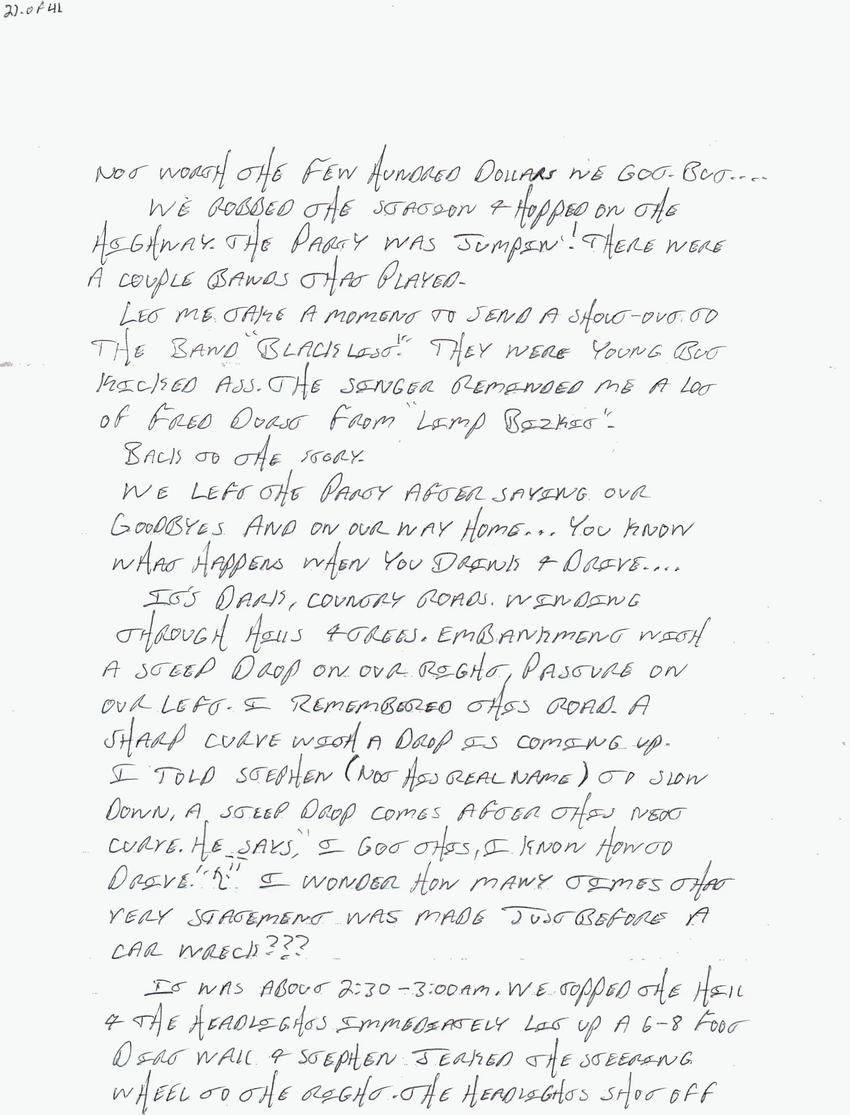 21. OF 41
NOT WORTH THE FEW HUNDRED DOLLARS WE GOT. BUT....
WE ROBBED THE STATION & HOPPED ON THE
HIGHWAY. THE PARTY WAS JUMPIN'! THERE WERE
A COUPLE BANDS THAT PLAYED.
LET ME TAKE A MOMENT TO SEND A SHOUT-OUT TO
THE BAND "BLACKLIST!" THEY WERE YOUNG BUT
KICKED ASS. THE SINGER REMINDED ME A LOT
OF FRED DURST FROM "LIMP BIZKIT".
BACK TO THE STORY.
WE LEFT THE PARTY AFTER SAYING OUR
GOODBYES AND ON OUR WAY HOME... YOU KNOW
WHAT HAPPENS WHEN YOU DRINK & DRIVE....
IT'S DARK, COUNTRY ROADS. WINDING
THROUGH HILLS & TREES. EMBANKMENT WITH
A STEEP DROP ON OUR RIGHT, PASTURE ON
OUR LEFT. I REMEMBERED THIS ROAD. A
SHARP CURVE WITH A DROP IS COMING UP.
I TOLD STEPHEN (NOT HIS REAL NAME) TO SLOW
DOWN, A STEEP DROP COMES AFTER THIS NEXT
CURVE. HE SAYS, "I GOT THIS, I KNOW HOW TO
DRIVE." I WONDER HOW MANY TIMES THAT
VERY STATEMENT WAS MADE JUST BEFORE A
CAR WRECK???
IT WAS ABOUT 2:30 - 3:00AM. WE TOPPED THE HILL
& THE HEADLIGHTS IMMEDIATELY LIT UP A 6-8 FOOT
DIRT WALL & STEPHEN JERKED THE STEERING
WHEEL TO THE RIGHT. THE HEADLIGHTS SHOT OFF